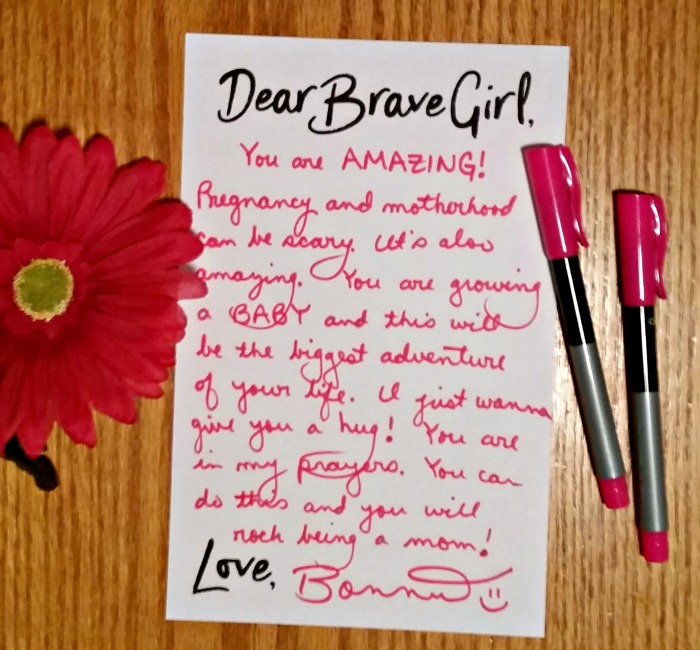 Dear Brave Girl,
You are AMAZING!
Pregnancy and motherhood
can be scary. It's also
amazing. You are growing
a BABY and this will
be the biggest adventure
of your life. I just wanna
give you a hug! You are
in my prayers. You can
do this and you will
rock being a mom!
Love, Bonnie